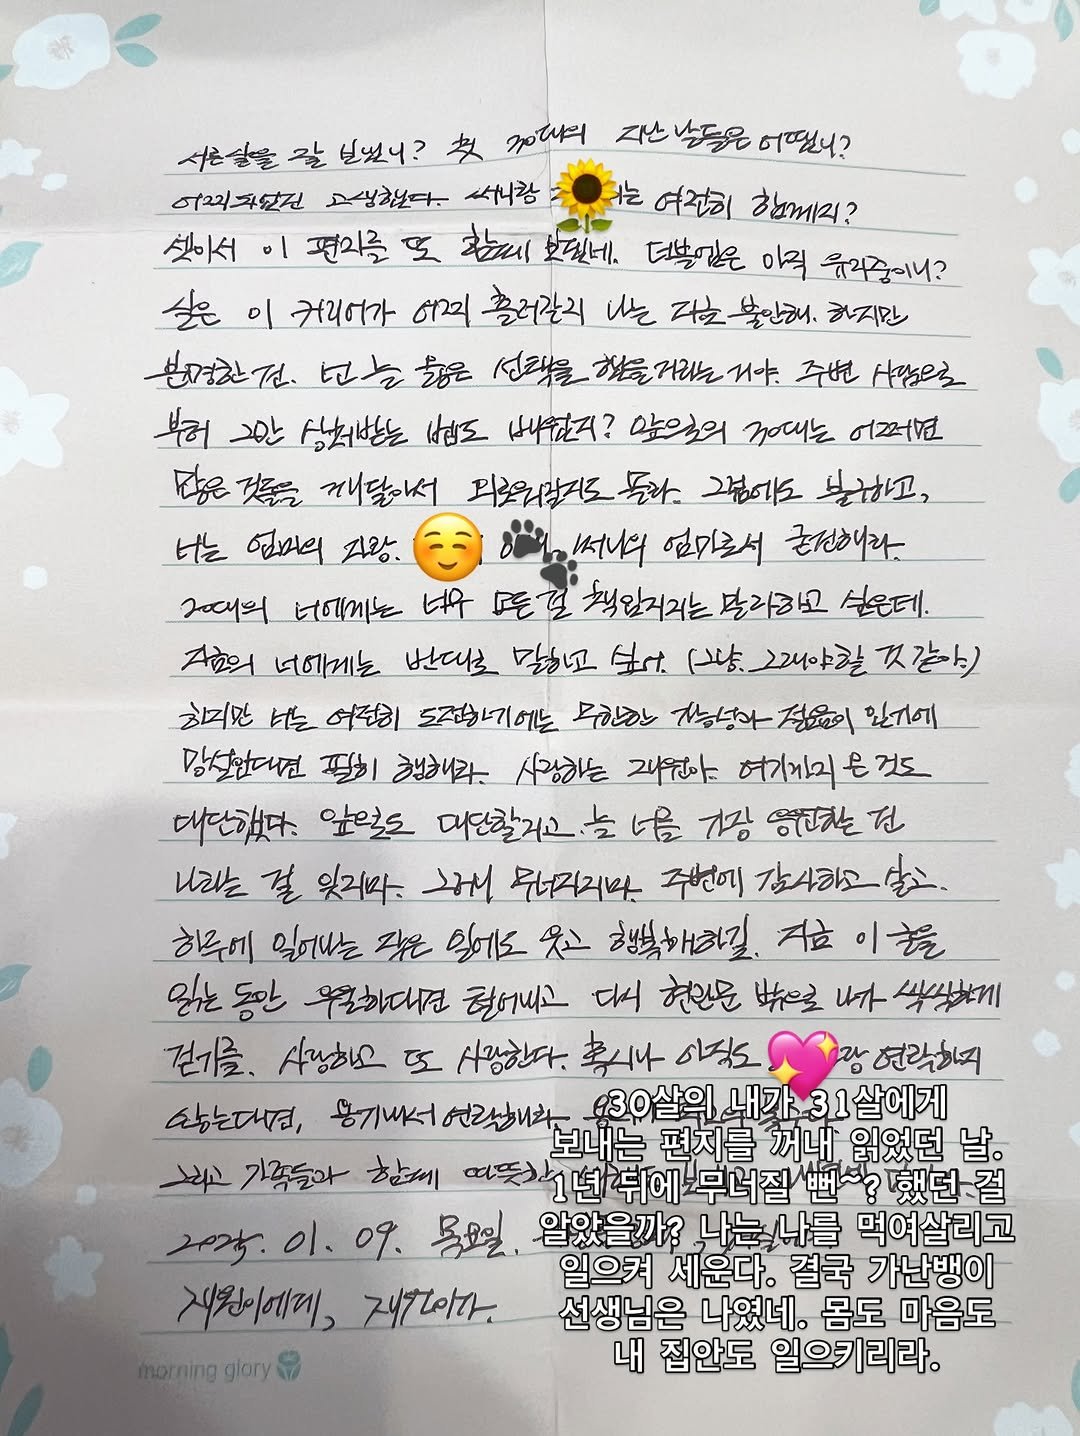 서른살을 잘 보냈니? 첫 30대의 지난 날들은 어땠니?
어찌되었던 고생했다. 써니랑 는 여전히 함께지?
셋이서 이 편지를 또 함께 보겠네. 더블업은 아직 유지중이니?
실은 이 커리어가 어찌 흘러갈지 나는 지금 불안해. 하지만
분명한 건. 넌 늘 옳은 선택을 했을거라는 거야. 주변 사람으로
부터 그만 상처받는 법도 배웠는지? 앞으로의 30대는 어쩌면
많은 것들을 깨달아서 괴로워질지도 몰라. 그럼에도 불구하고,
너는 엄마의 자랑. 써니의 엄마로서 굳건해라.
20대의 너에게는 너무 모든 걸 책임지지는 말라하고 싶은데.
지금의 너에게는 반대로 말하고 싶어. (그냥. 그래야할 것 같아.)
하지만 너는 여전히 도전하기에는 무한한 가능성과 젊음이 있기에
망설인다면 필히 행해라. 사랑하는 재원아. 여기까지 온 것도
대단했다. 앞으로도 대단할거고. 늘 너를 가장 응원하는 건
나라는 걸 잊지마. 그러니 무너지지마. 주변에 감사하고 살고.
하루에 일어나는 작은 일에도 웃고 행복해하길. 지금 이 글을
읽는 동안 우울하다면 털어내고 다시 현관문 밖으로 나가 씩씩하게
걷기를. 사랑하고 또 사랑한다. 혹시나 아직도 랑 연락하지
않는다면, 용기내서 연락해라.
그리고 가족들과 함께 따뜻한
2025. 01. 09. 목요일.
재원이에게, 재원이가.
30살의 내가 31살에게
보내는 편지를 꺼내 읽었던 날.
1년 뒤에 무너질 뻔~? 했던 걸
알았을까? 나는 나를 먹여살리고
일으켜 세운다. 결국 가난뱅이
선생님은 나였네. 몸도 마음도
내 집안도 일으키리라.
morning glory